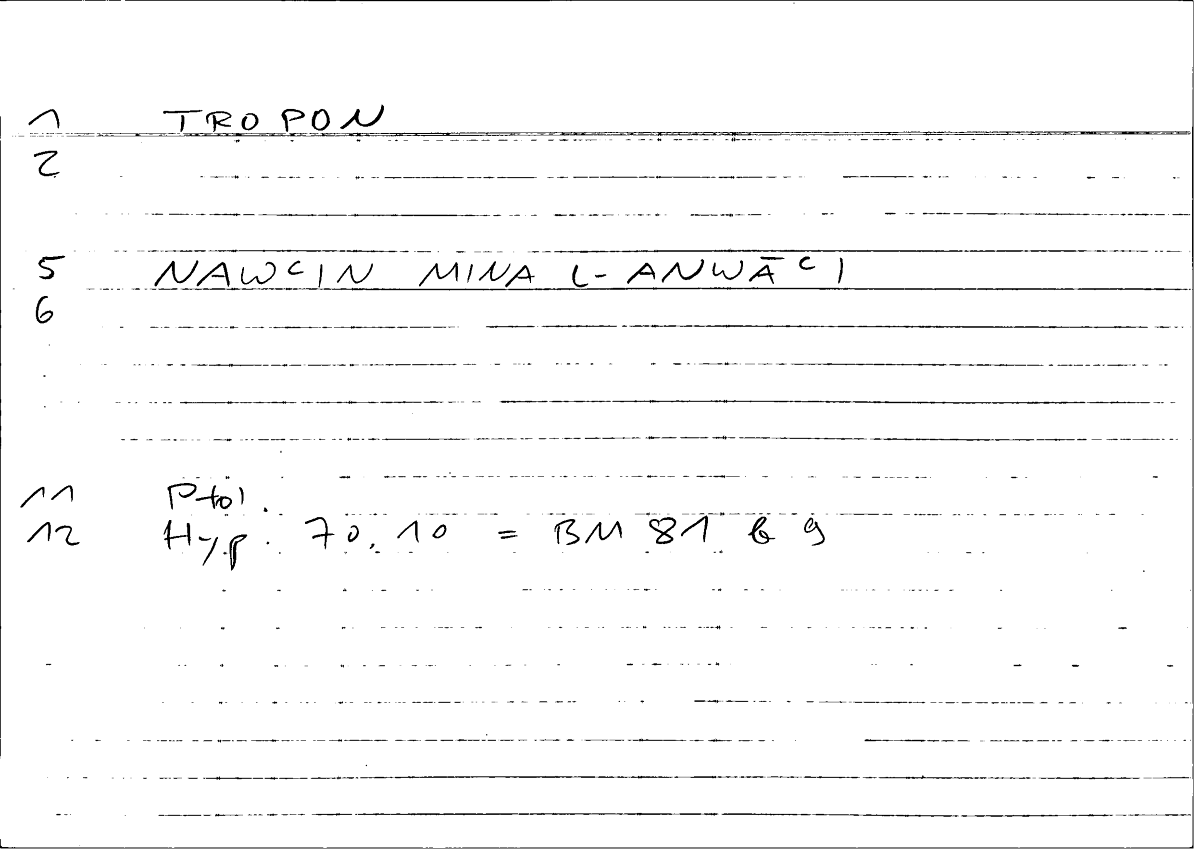 1 TROPON
2
5 NAWʿIN MINA L-ANWĀʿI
6
11 Ptol.
12 Hyp. 70,10 = BM 81 b 9